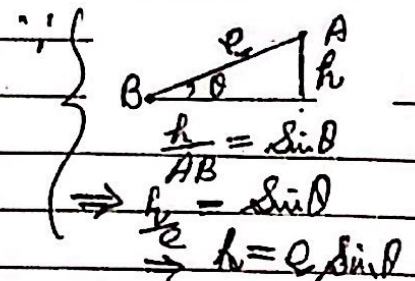 ∵
A
l
B θ h
h/AB = Sinθ
⇒ h/l = Sinθ
⇒ h = l Sinθ